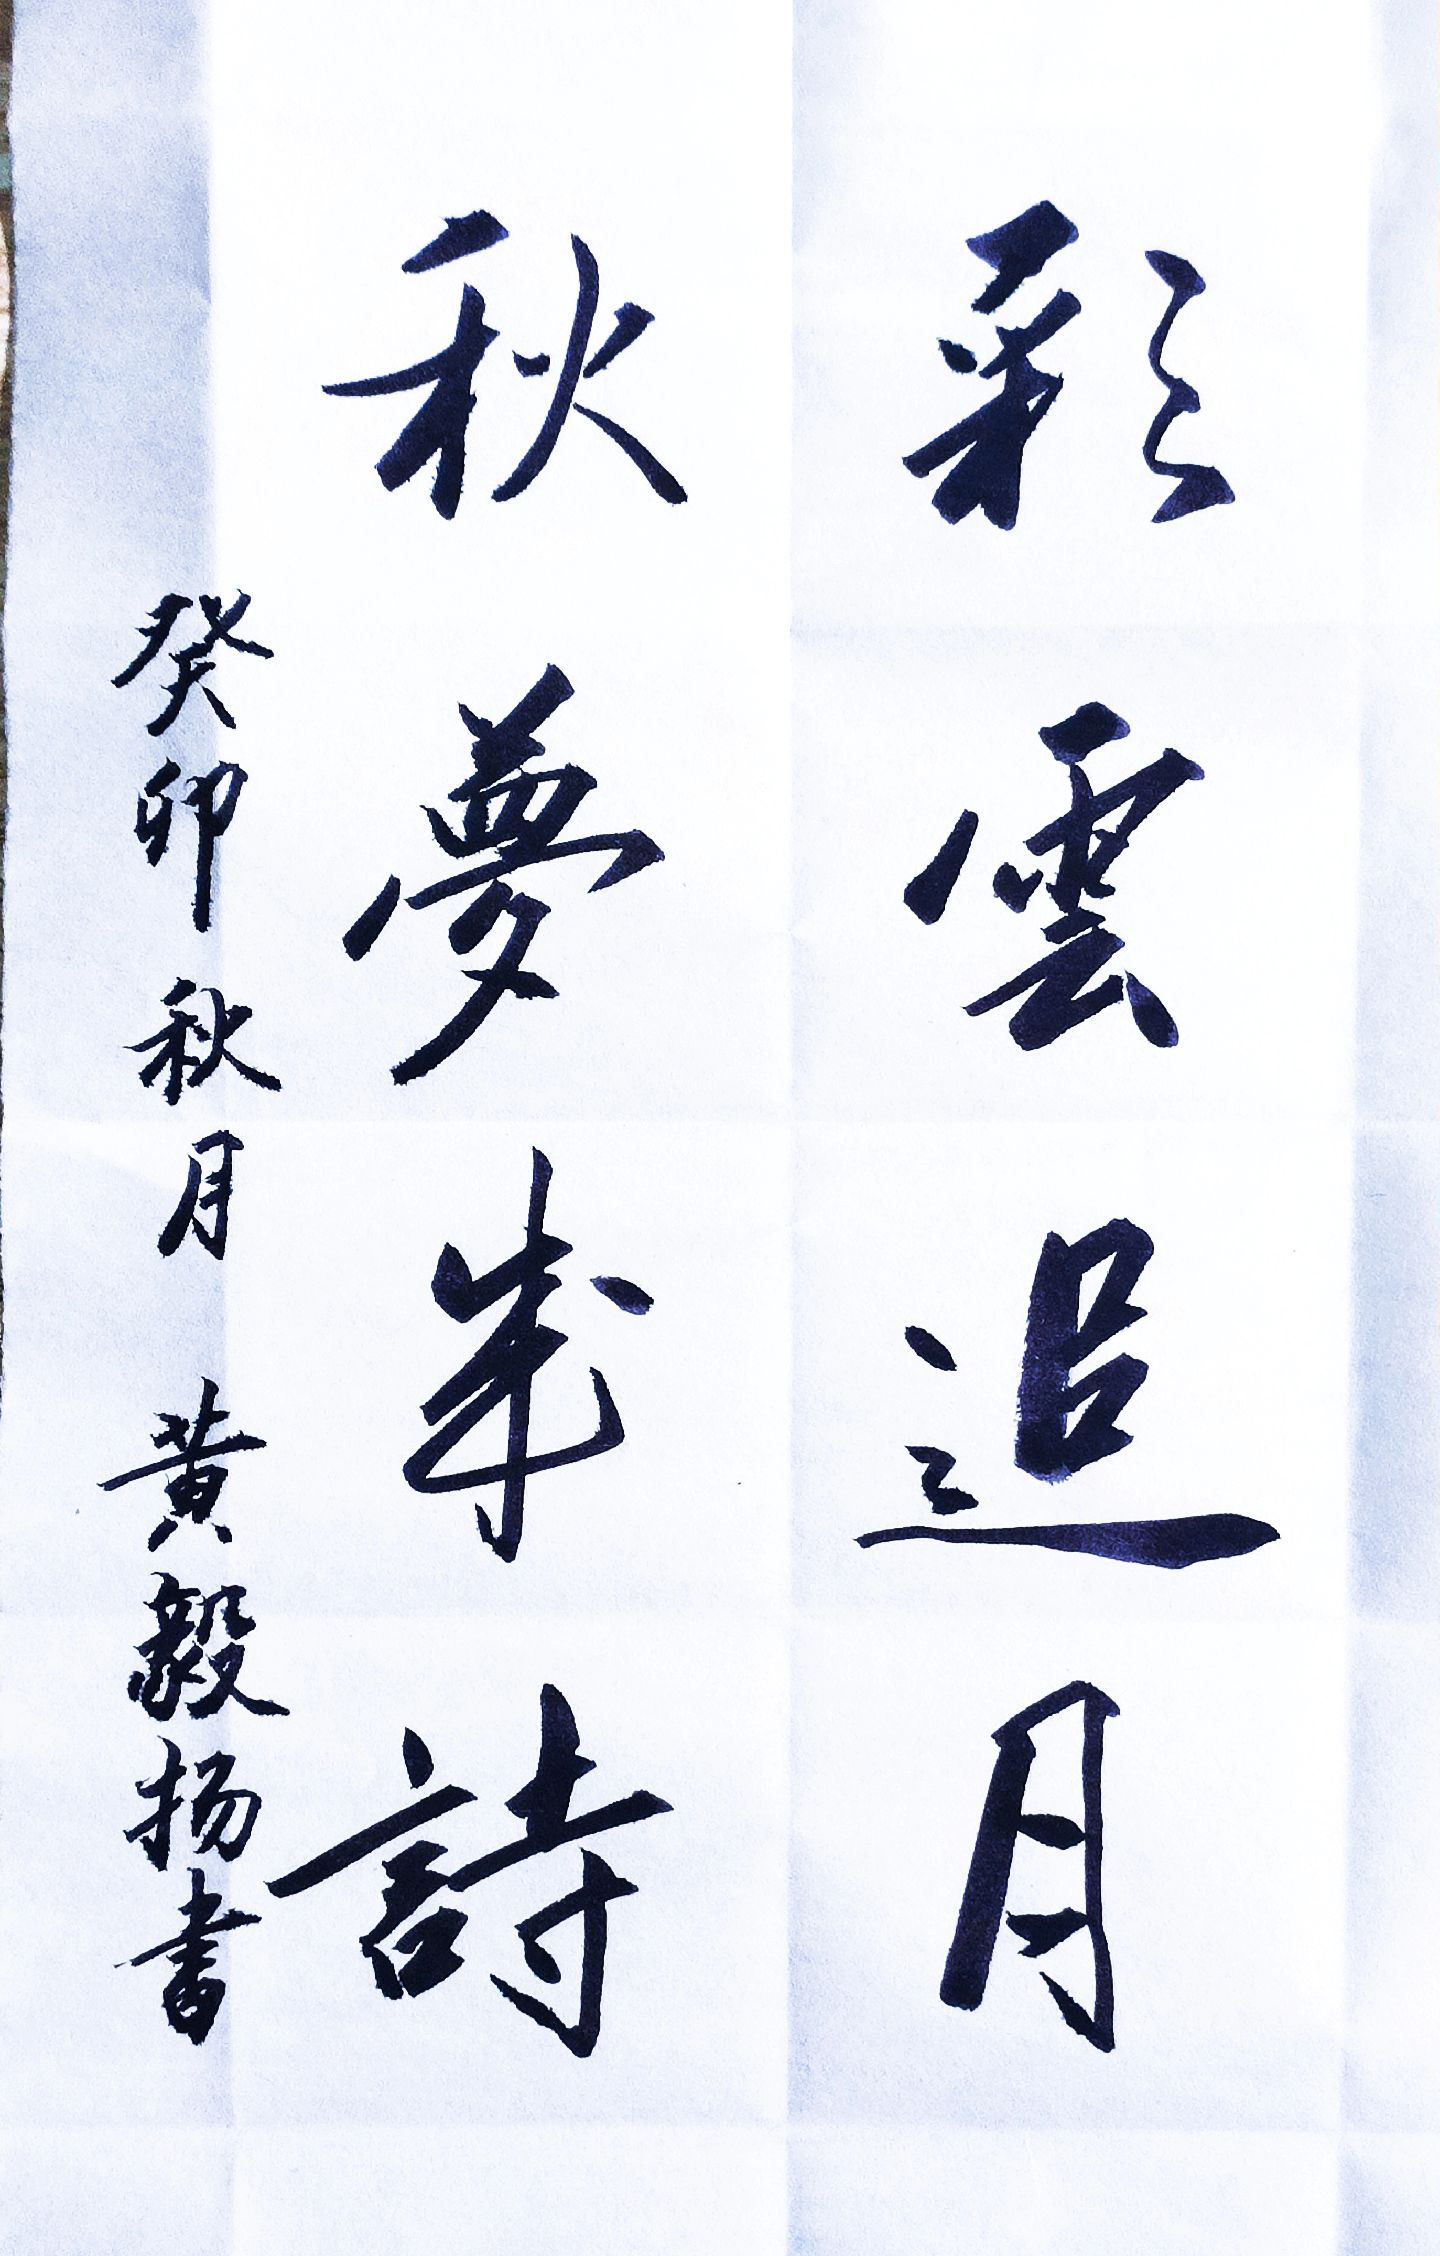 彩雲追月
秋夢成詩
癸卯秋月 黄毅扬書